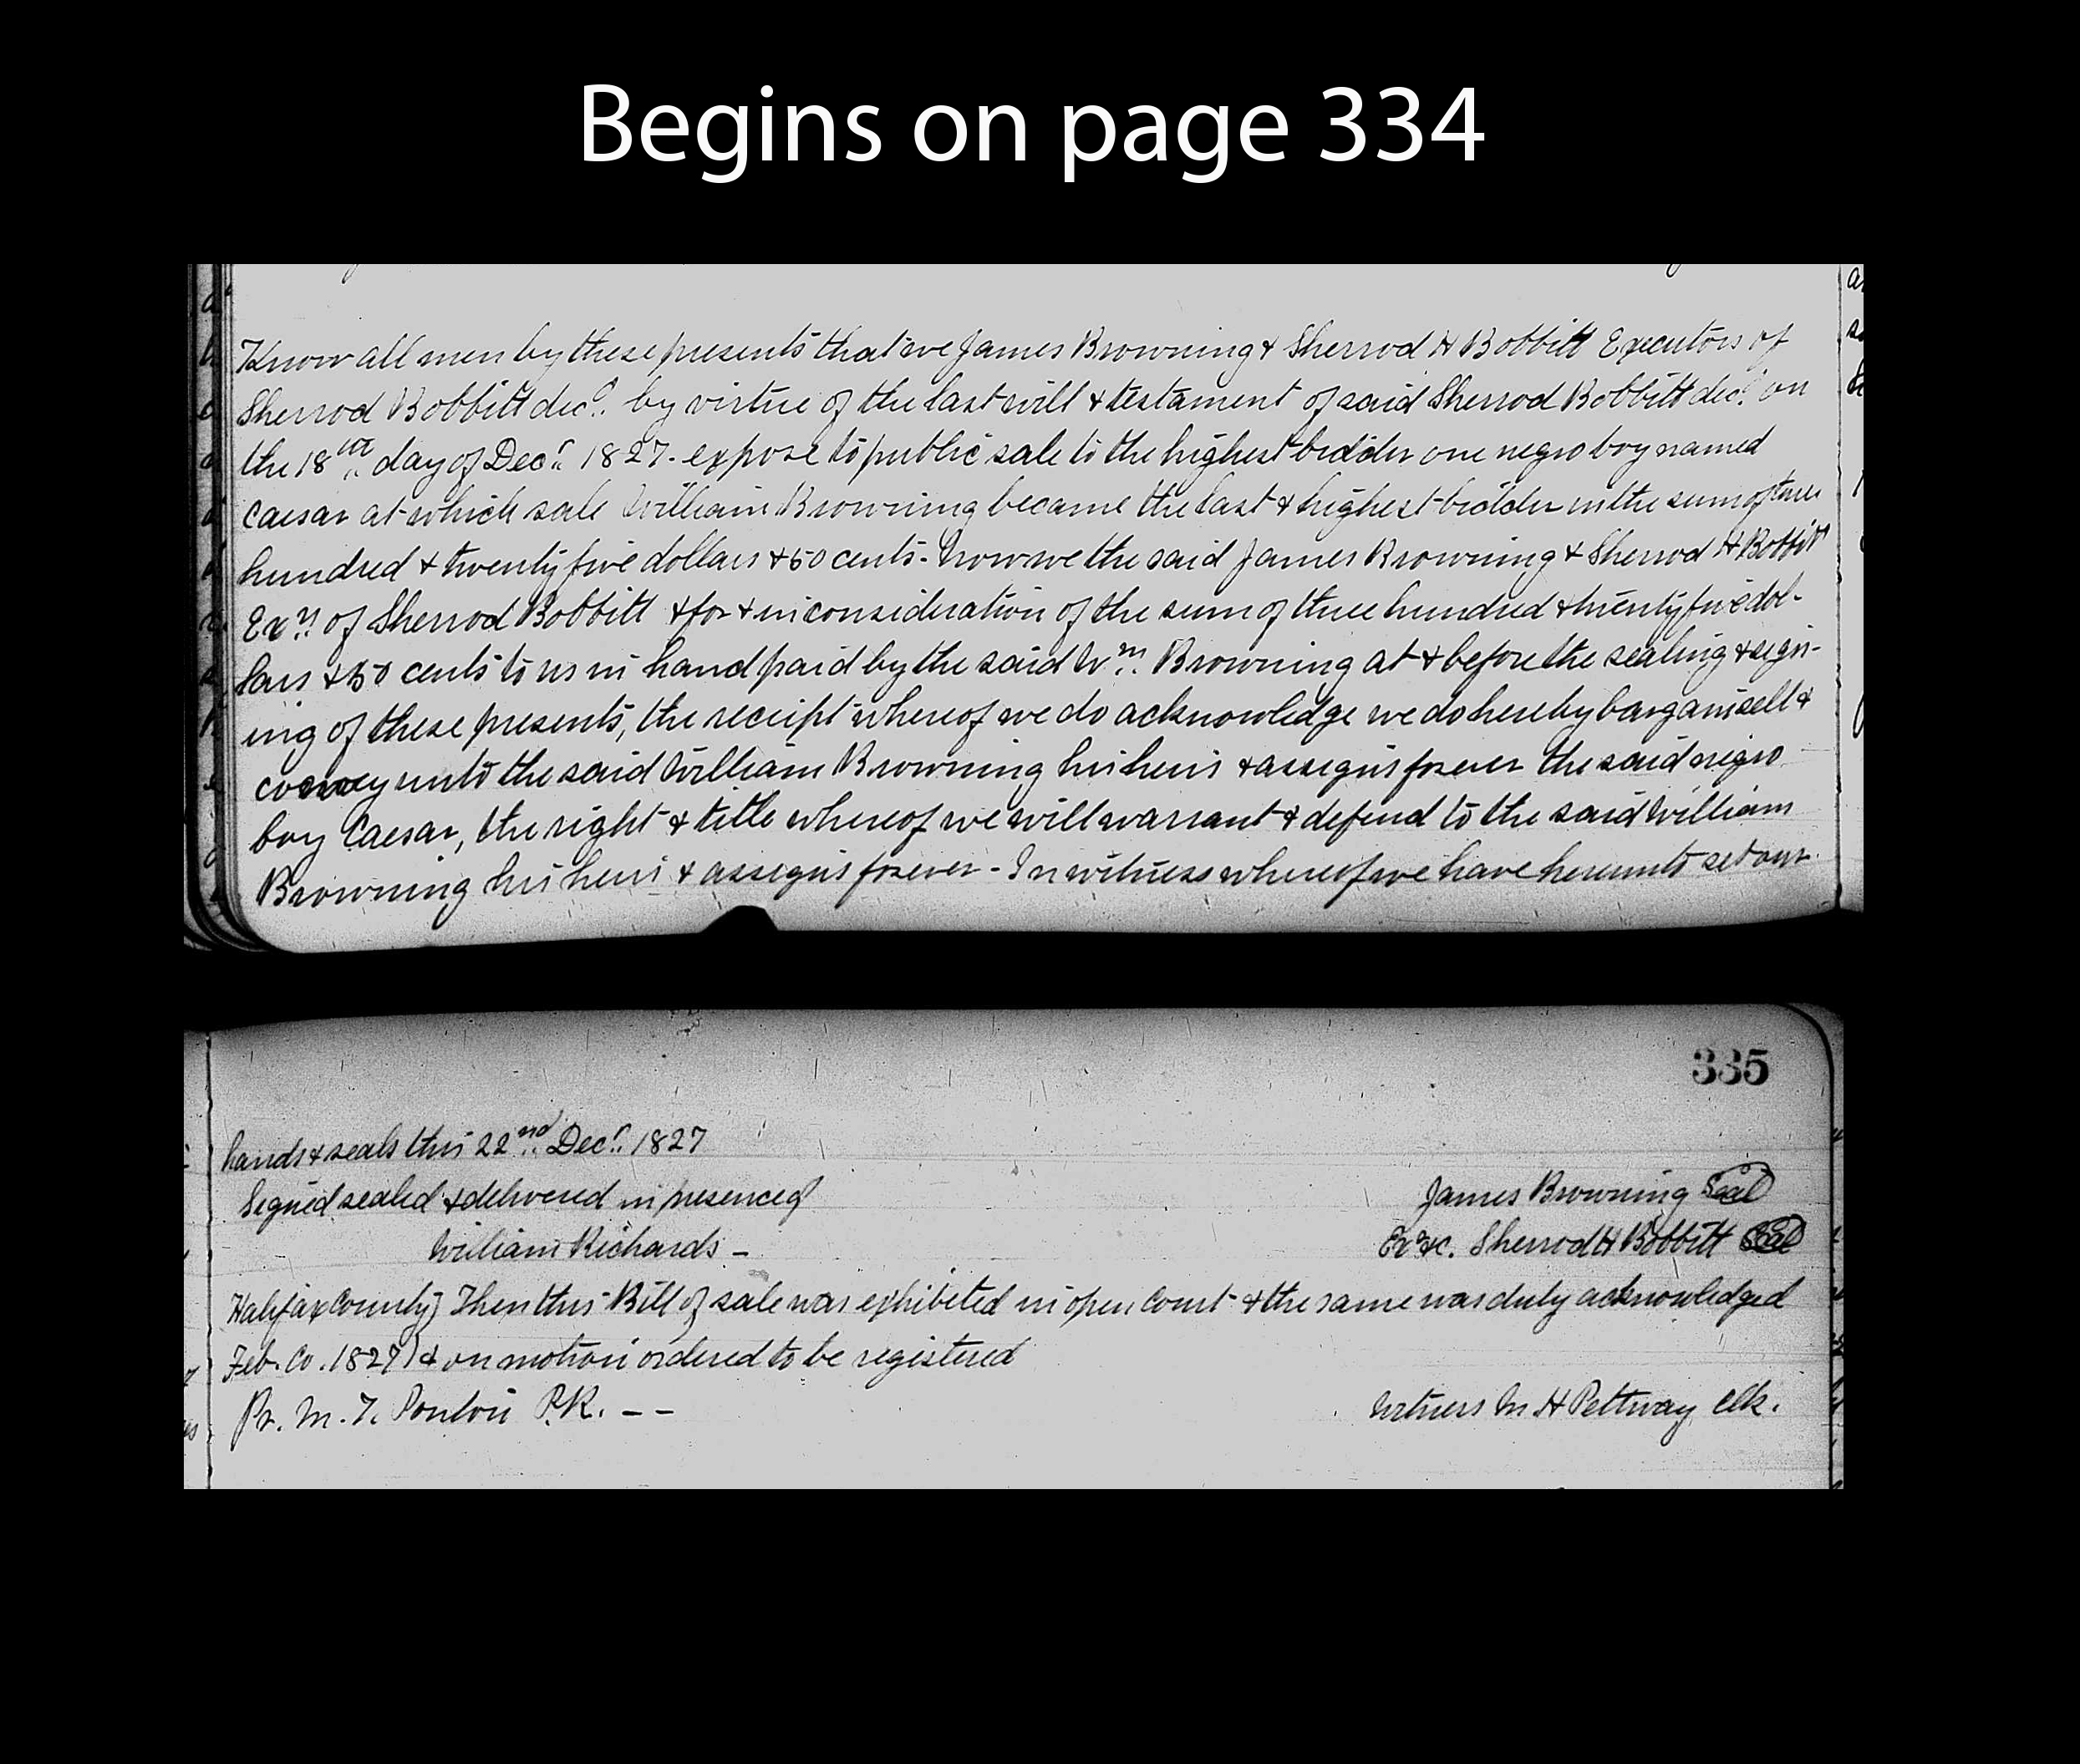 Begins on page 334
Know all men by these presents that we James Browning & Sherrod H Bobbitt Executors of
Sherrod Bobbitt decd. by virtue of the last will & testament of said Sherrod Bobbitt decd. on
the 18th day of Decr. 1827. expose to public sale to the highest bidder one negro boy named
Caesar at which sale William Browning became the last & highest bidder in the sum of three
hundred & twenty five dollars & 50 cents. Now we the said James Browning & Sherrod H Bobbitt
Exrs. of Sherrod Bobbitt & for & in consideration of the sum of three hundred & twenty five dol-
lars & 50 cents to us in hand paid by the said Wm. Browning at & before the sealing & sign-
ing of these presents, the receipt whereof we do acknowledge we do hereby bargain sell &
convey unto the said William Browning his heirs & assigns forever the said negro
boy Caesar, the right & title whereof we will warrant & defend to the said William
Browning his heirs & assigns forever - In witness whereof we have hereunto set our
335
hands & seals this 22nd. Decr. 1827
Signed sealed & delivered in presence of
James Browning Seal
William Richards -
Ex &c. Sherrod H Bobbitt Seal
Halifax County} Then this Bill of sale was exhibited in open Court & the same was duly acknowledged
Feb. Co. 1827) & on motion ordered to be registered
Pr. M. T. Ponton P.R. - -
Witness M H Pettway Clk.